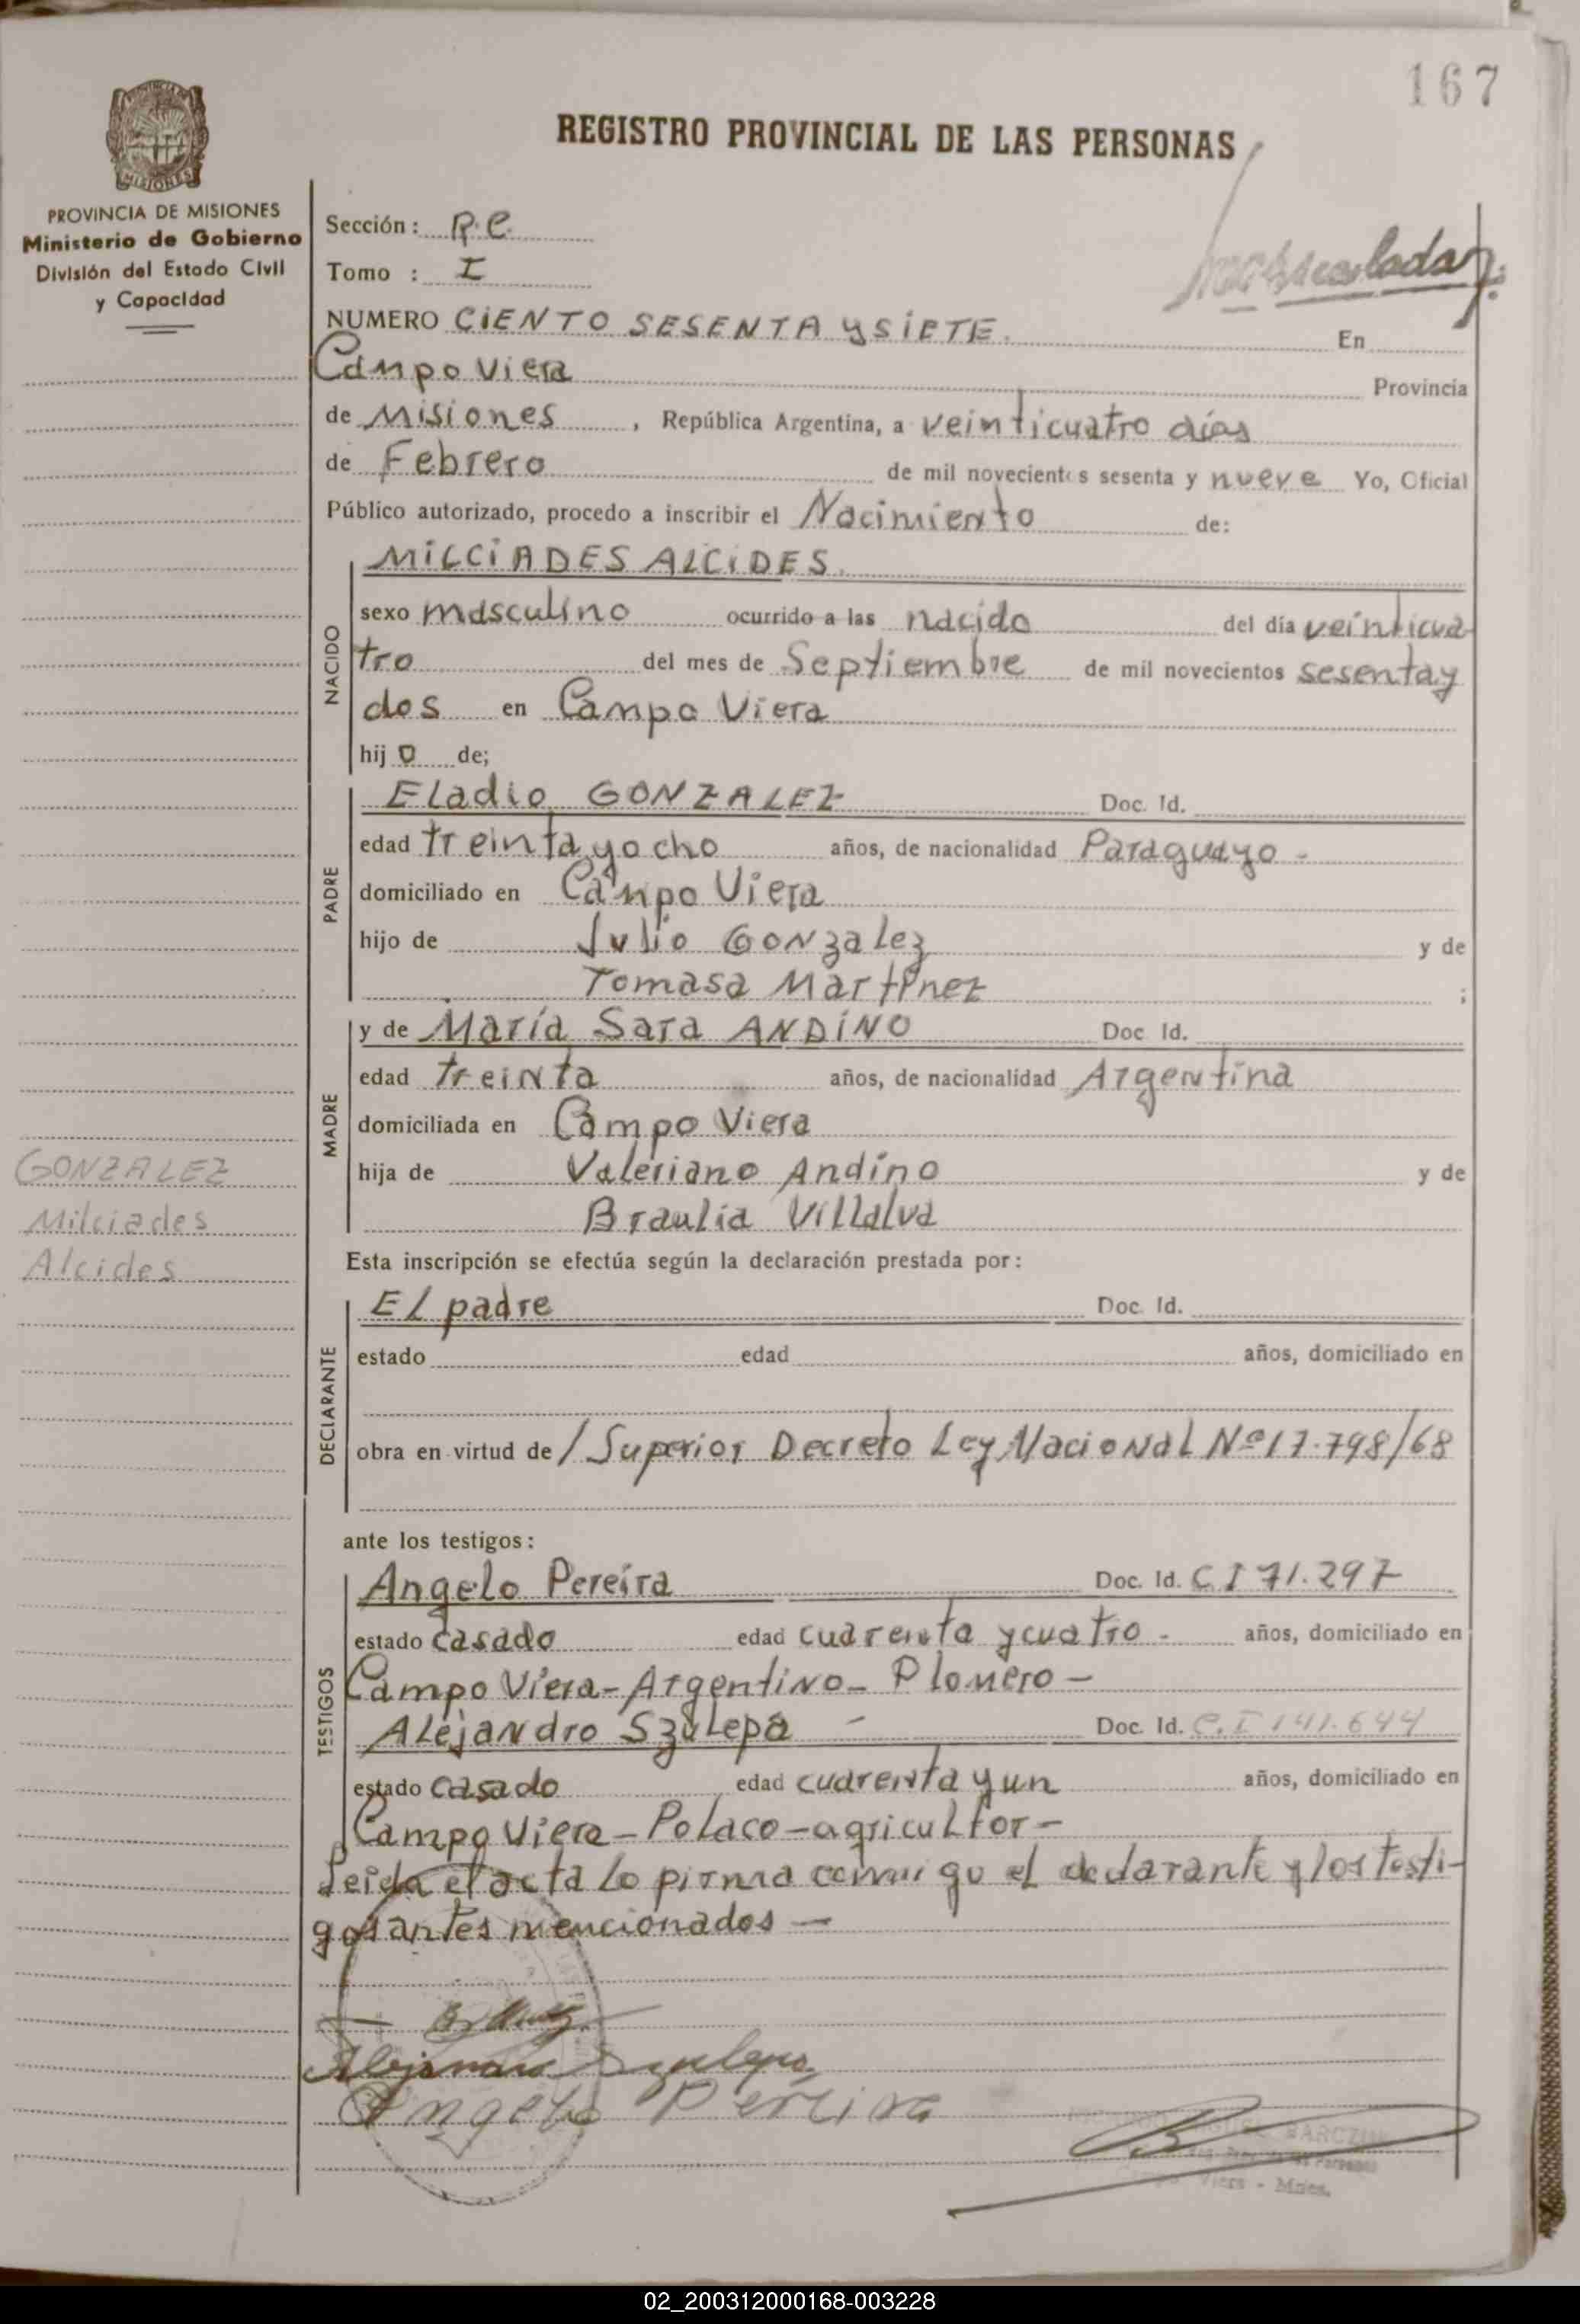 167
REGISTRO PROVINCIAL DE LAS PERSONAS
PROVINCIA DE MISIONES
Ministerio de Gobierno
División del Estado Civil
y Capacidad
Sección: R.C.
Tomo : I
NUMERO CIENTO SESENTA y SIETE. En
Campo Viera Provincia
de Misiones, República Argentina, a veinticuatro días
de Febrero de mil novecientos sesenta y nueve Yo, Oficial
Público autorizado, procedo a inscribir el Nacimiento de:
NACIDO
MILCIADES ALCIDES.
sexo masculino ocurrido a las nacido del día veinticua
tro del mes de Septiembre de mil novecientos sesenta y
dos en Campo Viera
hijo de;
PADRE
Eladio GONZALEZ Doc. Id.
edad treinta y ocho años, de nacionalidad Paraguayo -
domiciliado en Campo Viera
hijo de Julio GONzalez y de
Tomasa Martinez ;
MADRE
y de María Sara ANDINO Doc. Id.
edad treinta años, de nacionalidad Argentina
domiciliada en Campo Viera
hija de Valeriano Andino y de
Braulia Villalva
GONZALEZ
Milciades
Alcides
Esta inscripción se efectúa según la declaración prestada por:
DECLARANTE
El padre Doc. Id.
estado edad años, domiciliado en
obra en virtud de / Superior Decreto Ley Nacional Nº 17.798/68
ante los testigos:
TESTIGOS
Angelo Pereira Doc. Id. C I 71.297
estado casado edad cuarenta y cuatro - años, domiciliado en
Campo Viera - Argentino - Plomero -
Alejandro Szulepa - Doc. Id. C.I 141.644
estado casado edad cuarenta y un años, domiciliado en
Campo Viera - Polaco - agricultor -
Leida el acta lo pirma conmigo el declarante y los testi-
gos antes mencionados -
Alejandro Szulepa
Angelo Pereira
BARCZUK
Viera - Mnes.
02_200312000168-003228